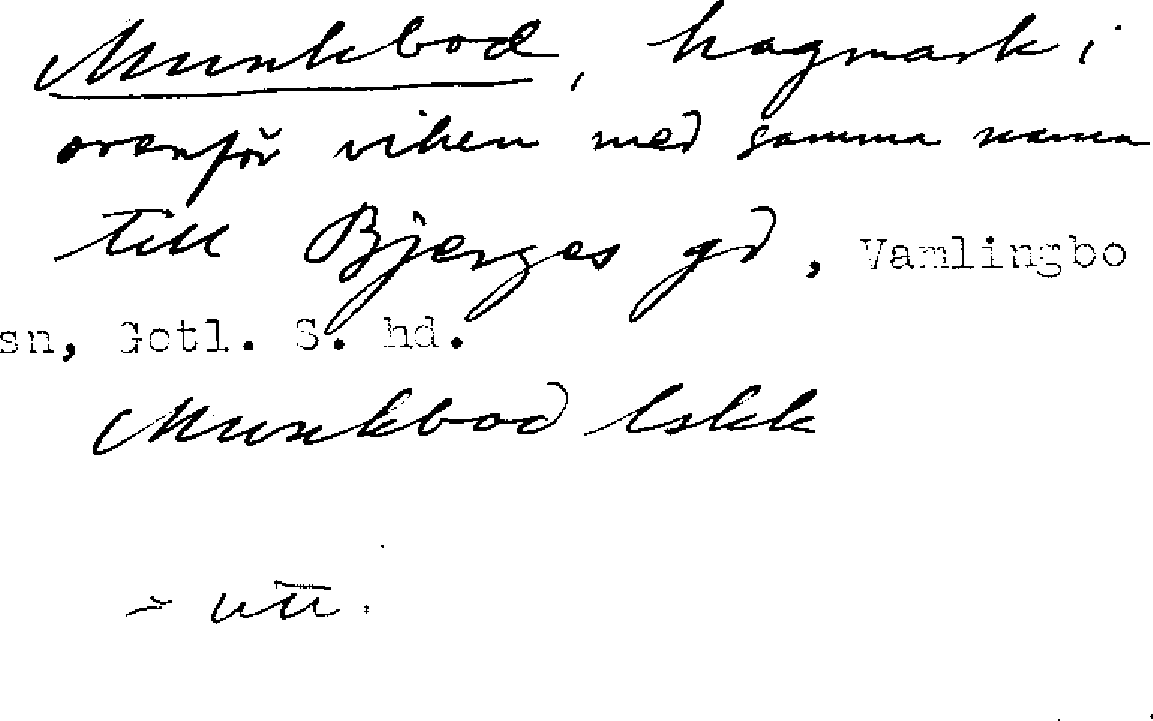 Munkbod, hagmark i
ovanför viken med samma namn
till Bjerges gd, Vamlingbo
sn, Gotl. S. hd.
Munkbod lskk
= utt.